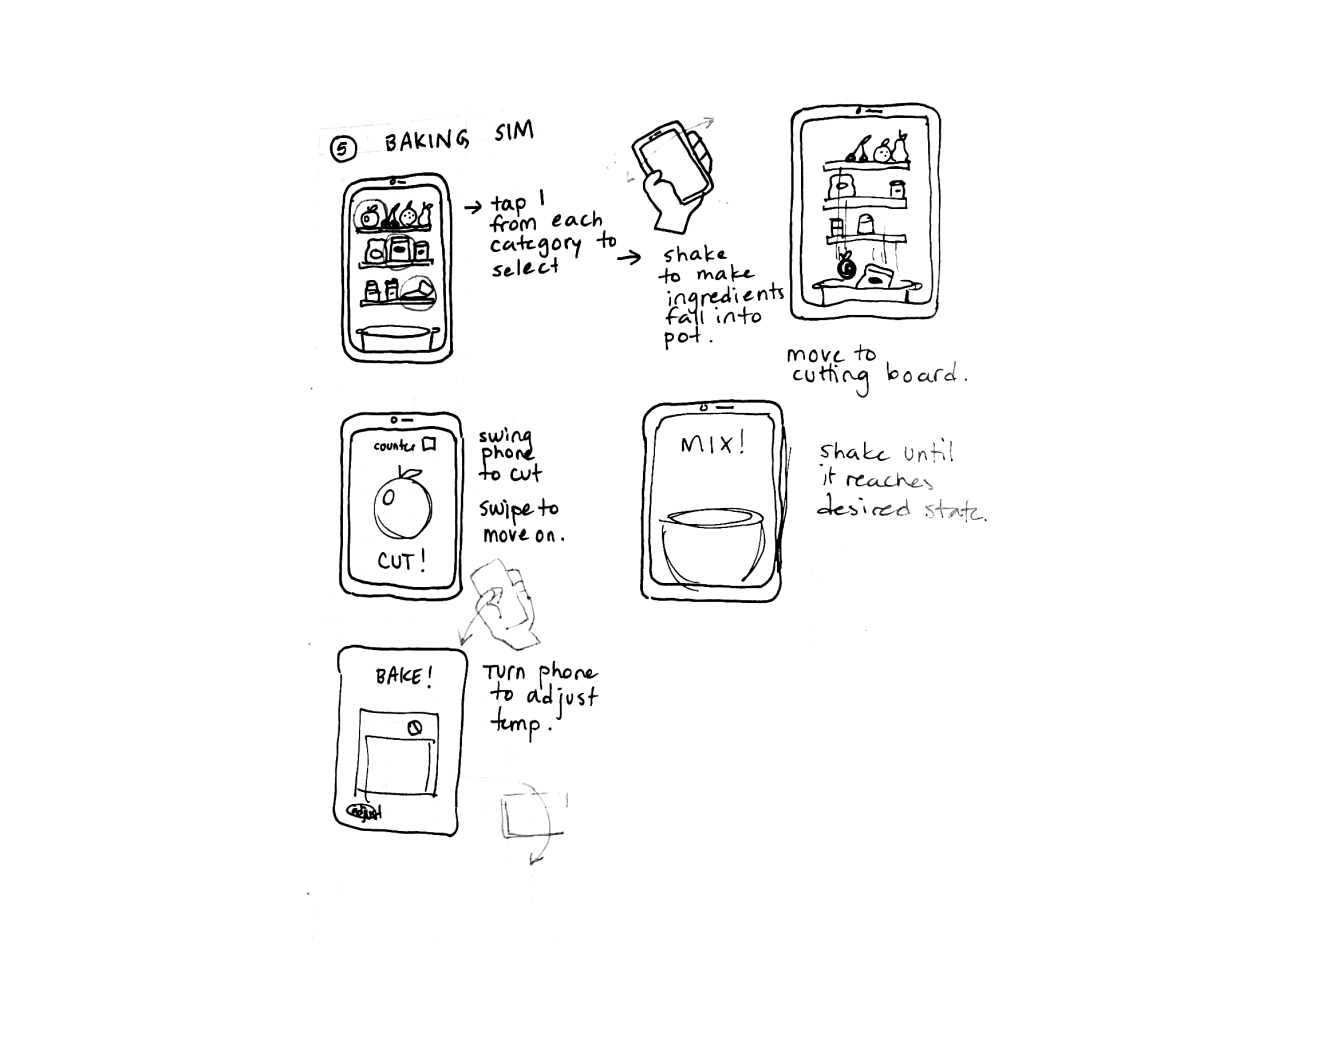 5 BAKING SIM
→ tap 1
from each
category to
select
→ shake
to make
ingredients
fall into
pot.
move to
cutting board.
counter
CUT!
swing
phone
to cut
swipe to
move on.
MIX!
shake until
it reaches
desired state.
BAKE!
adjust
Turn phone
to adjust
temp.